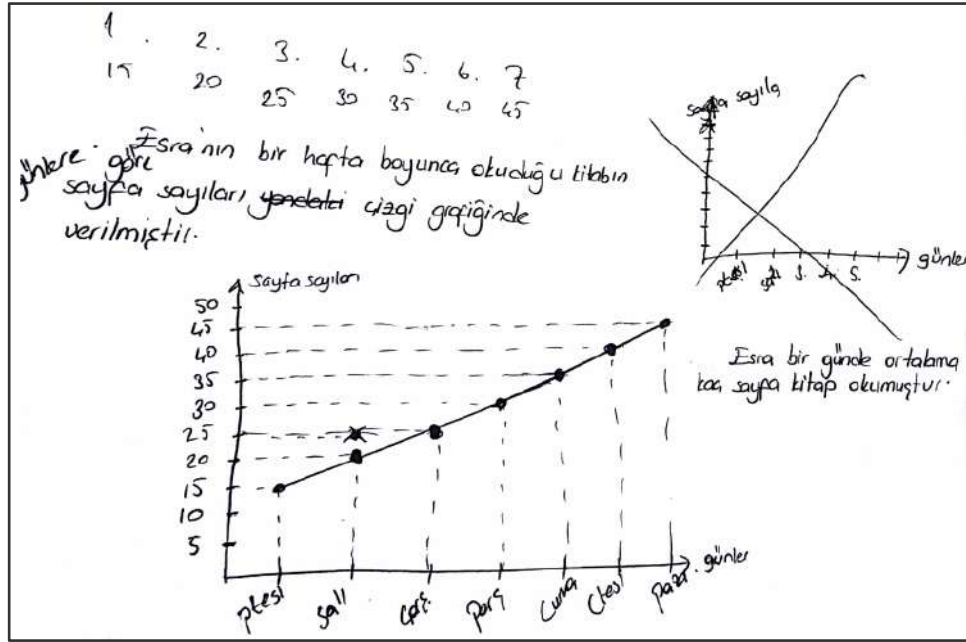 1. 2. 3. 4. 5. 6. 7
15 20 25 30 35 40 45
Esra'nın bir hafta boyunca okuduğu kitabın
günlere göre
sayfa sayıları yandaki çizgi grafiğinde
verilmiştir.
sayfa sayıla
ptesi salı 3. 4. 5.
günler
Esra bir günde ortalama
kaç sayfa kitap okumuştur.
sayfa sayıları
50
45
40
35
30
25
20
15
10
5
ptesi salı çarş. perş cuma Ctesi pazar günler